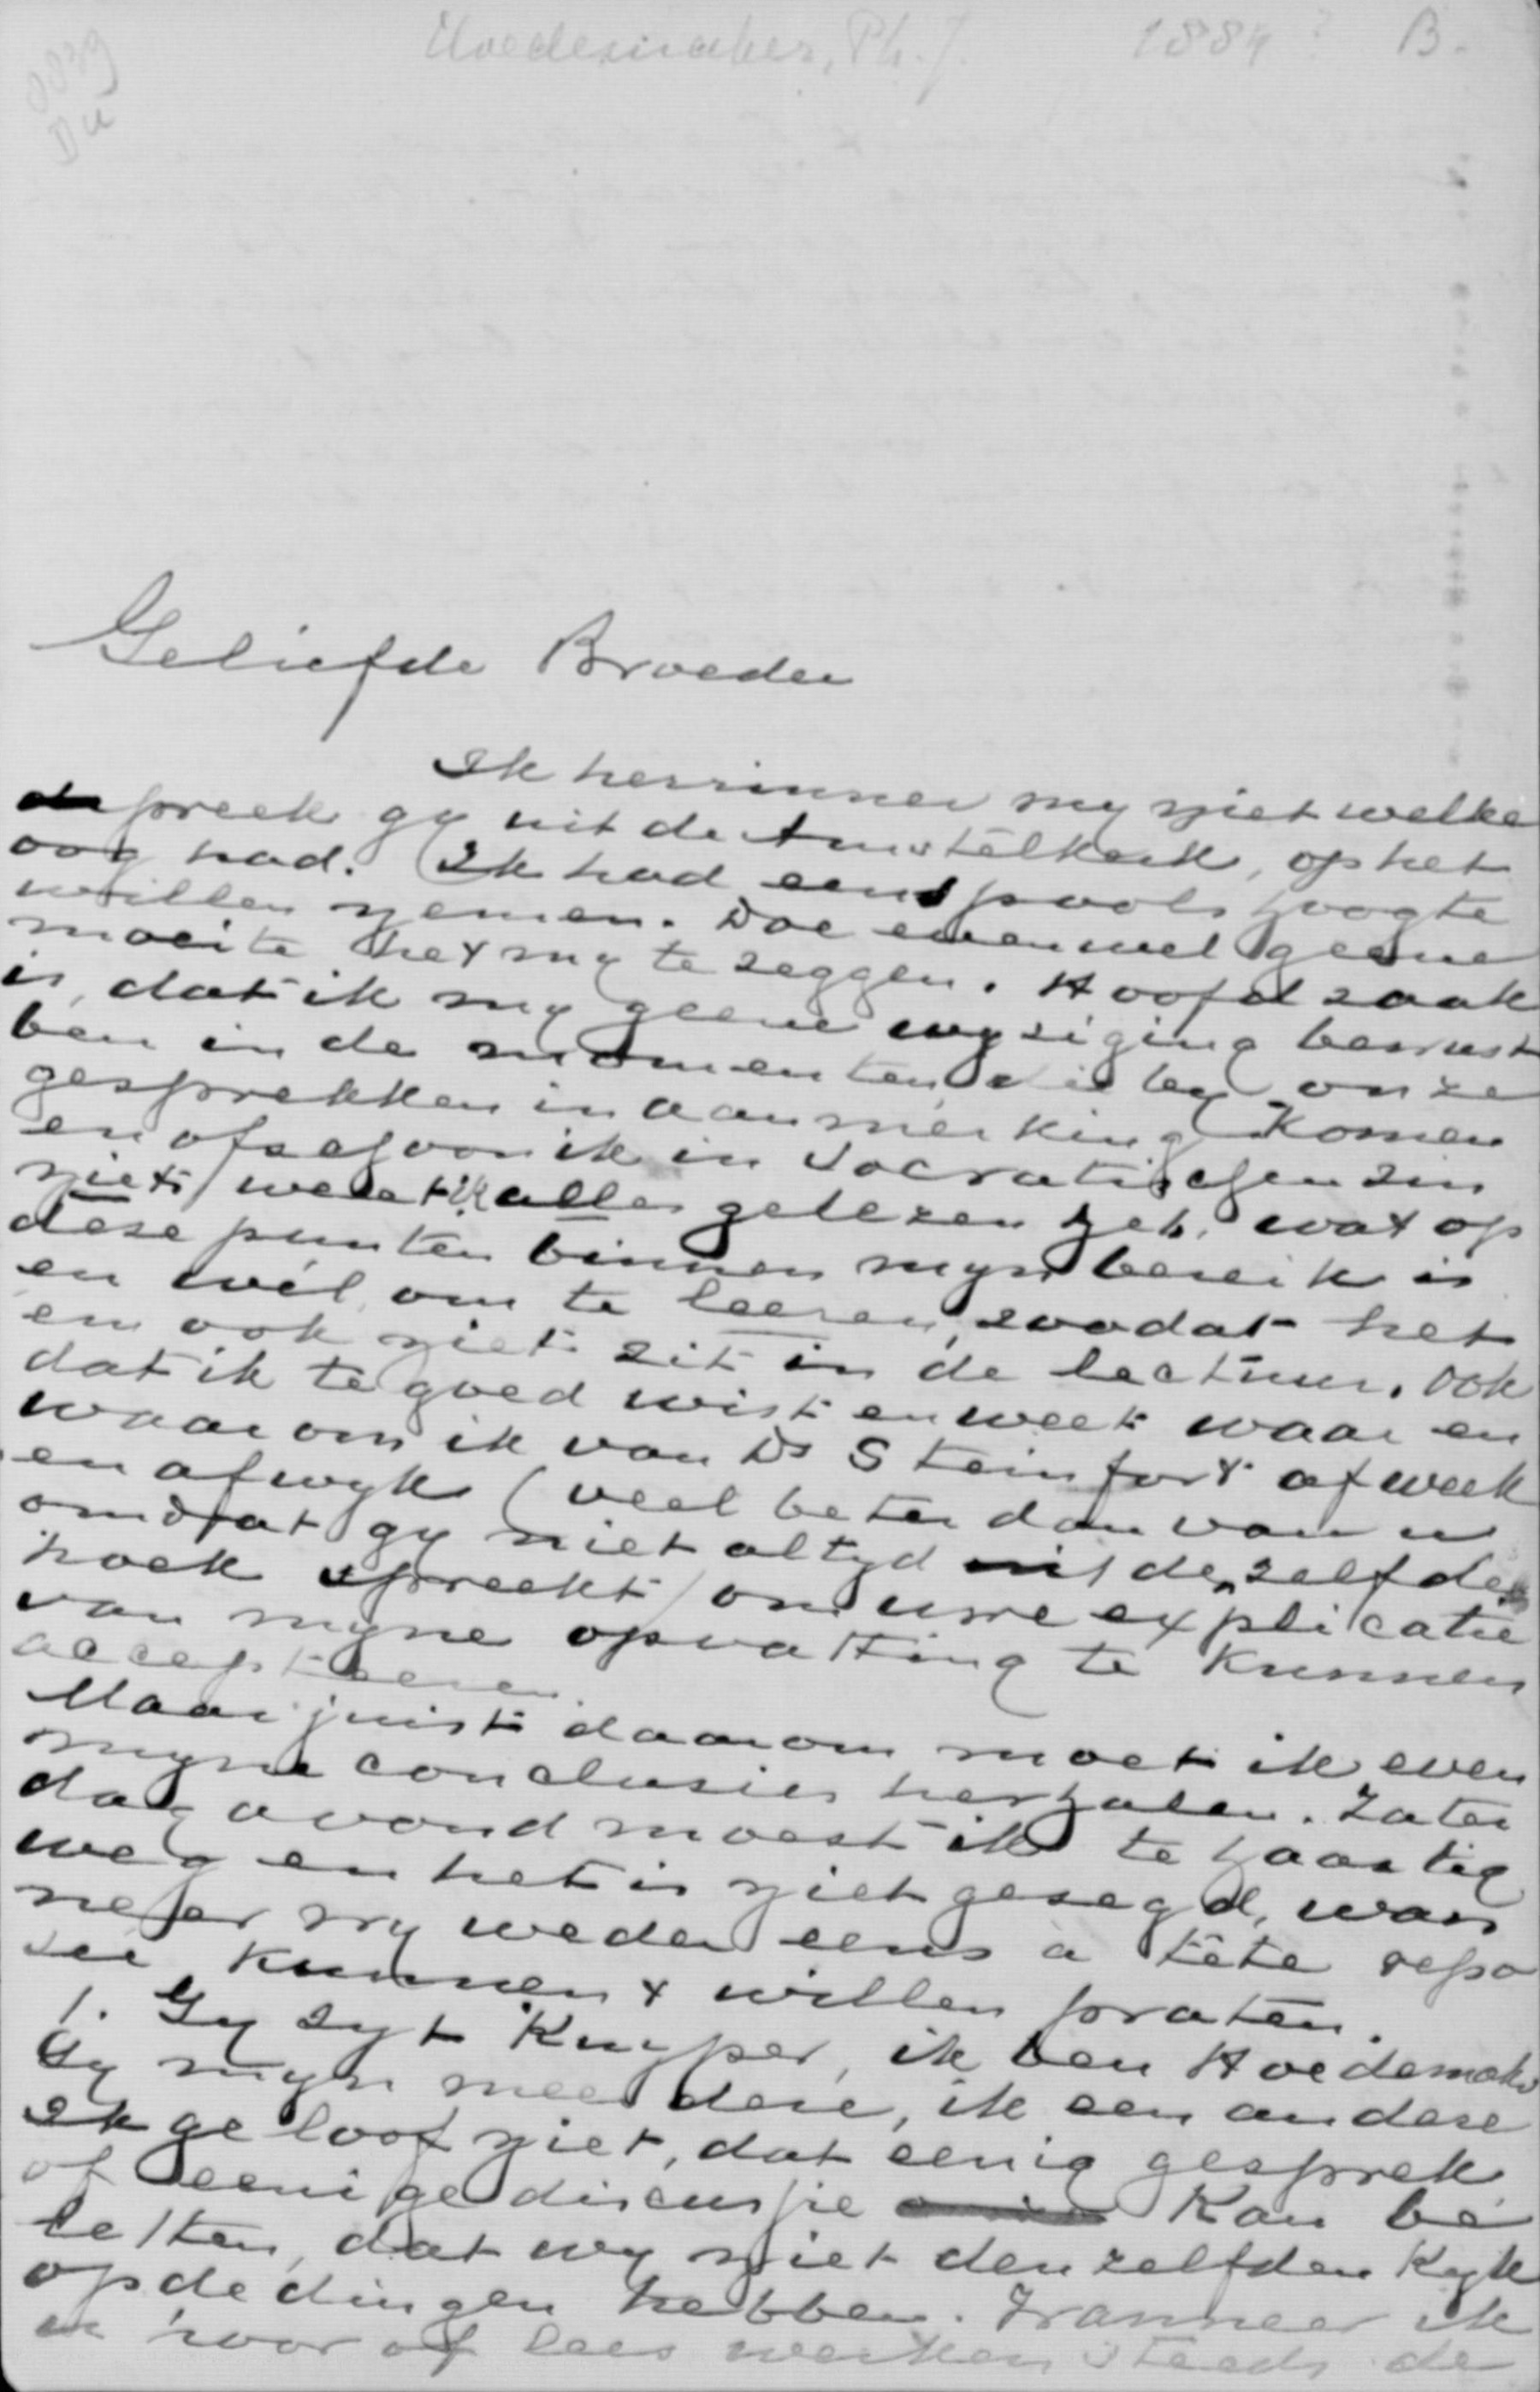 Hoedemaker, Ph. J. 1884? B.
0039
Du
Geliefde Broeder
Ik herrinner my niet welke
preek gy uit de Amstelkerk, op het
oog had. Ik had eens pools hoogte
willen nemen. Doe evenwel geene
moeite het my te zeggen. Hoofdzaak
is, dat ik my geene wyziging bewust
ben in de momenten die by onze
gesprekken in aanmerking komen
en ofschoon ik in Socratischen zin
niets weet, ik alles gelezen heb, wat op
deze punten binnen myn bereik is
en wél, om te leeren, zoodat het
em ook niet zit in de lectuur. Ook
dat ik te goed wist en weet waar en
waarom ik van Ds Steinfort afweek
en afwyk (veel beter dan van u
omdat gy niet altyd uit denzelfden
hoek spreekt) om uwe explicatie
van myne opvatting te kunnen
accepteeren.
Maar juist daarom moet ik even
myne conclusies herhalen. Zater
dag avond moest ik te haastig
weg en het is niet gezegd, wan
neer wy weder eens à tête repo
sée kunnen & willen praten.
1. Gy zyt Kuyper, ik ben Hoedemaker
Gy myn meerdere, ik een andere
Ik geloof niet, dat eenig gesprek
of eenige discussie kan be
letten, dat wy niet denzelfden kyk
op de dingen hebben. Wanneer ik
u hoor of lees werken steeds de